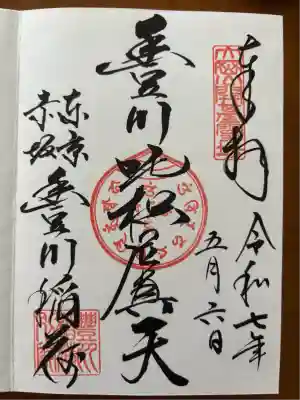 奉拝
令和七年
五月六日
豊川吒枳尼真天
東京
赤坂
豊川稲荷